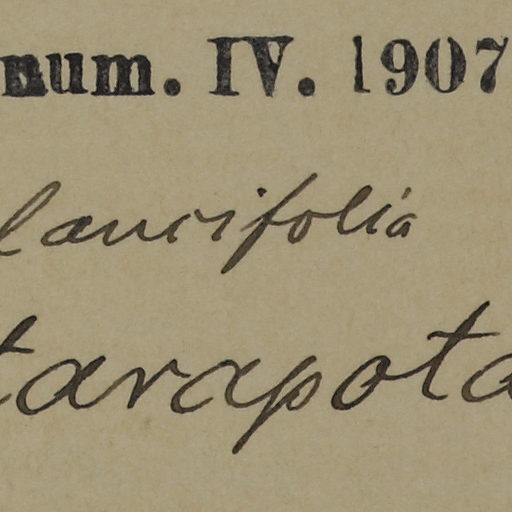 num. IV. 1907
lancifolia
tarapota